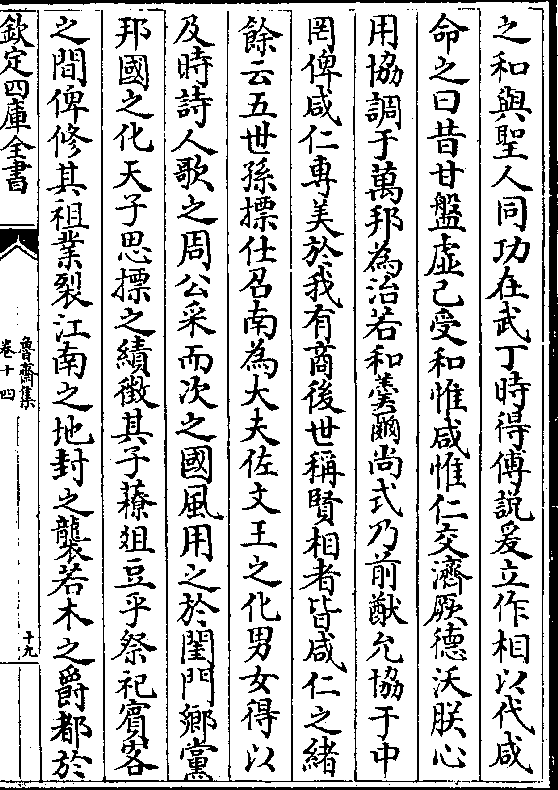 之和與聖人同功在武丁時得傅説爰立作相以代咸
命之曰昔甘盤虚己受和惟咸惟仁交濟厥德沃朕心
用協調于萬邦為治若和羹爾尚式乃前猷允協于中
罔俾咸仁專美於我有商後世稱賢相者皆咸仁之緒
餘云五世孫摽仕召南為大夫佐文王之化男女得以
及時詩人歌之周公采而次之國風用之於閨門鄉黨
邦國之化天子思摽之績徴其子䕩俎豆乎祭祀賓客
之間俾修其祖業裂江南之地封之襲若木之爵都於
欽定四庫全書
魯齋集
卷十四
十九